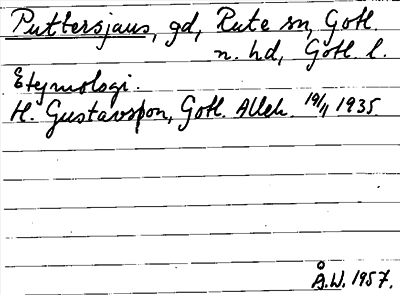 Puttersjaus, gd, Rute sn, Gotl.
n. hd, Gotl. l.
Etymologi.
H. Gustavson, Gotl. Alleh. 19/11 1935.
Å.W. 1957.